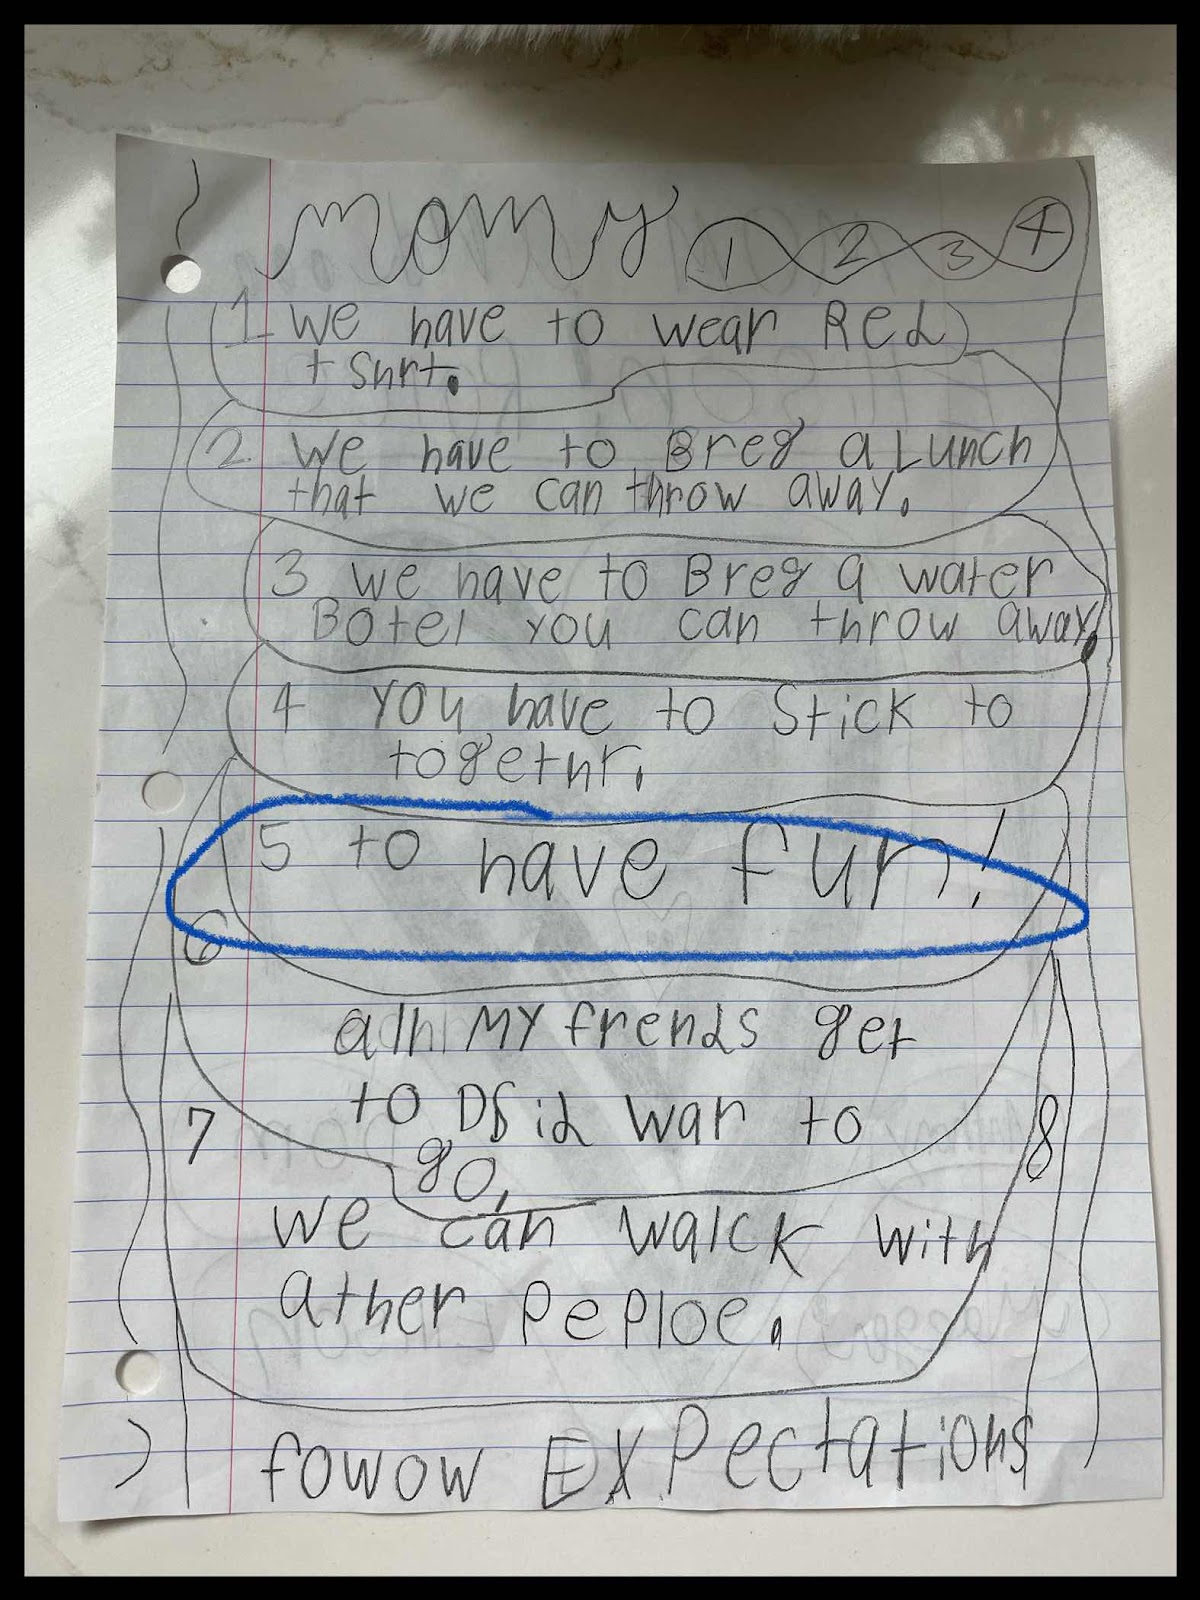 momy 1 2 3 4
1 We have to wear Red
t Shrt.
2 We have to Breg a Lunch
that we can throw away.
3 we have to Breg a water
Botel you can throw away.
4 you have to Stick to
togethr.
5 to have fun!
6
MY frends get
to war to
7 8
go,
we can walck with
ather PePloe.
fowow EXPectations